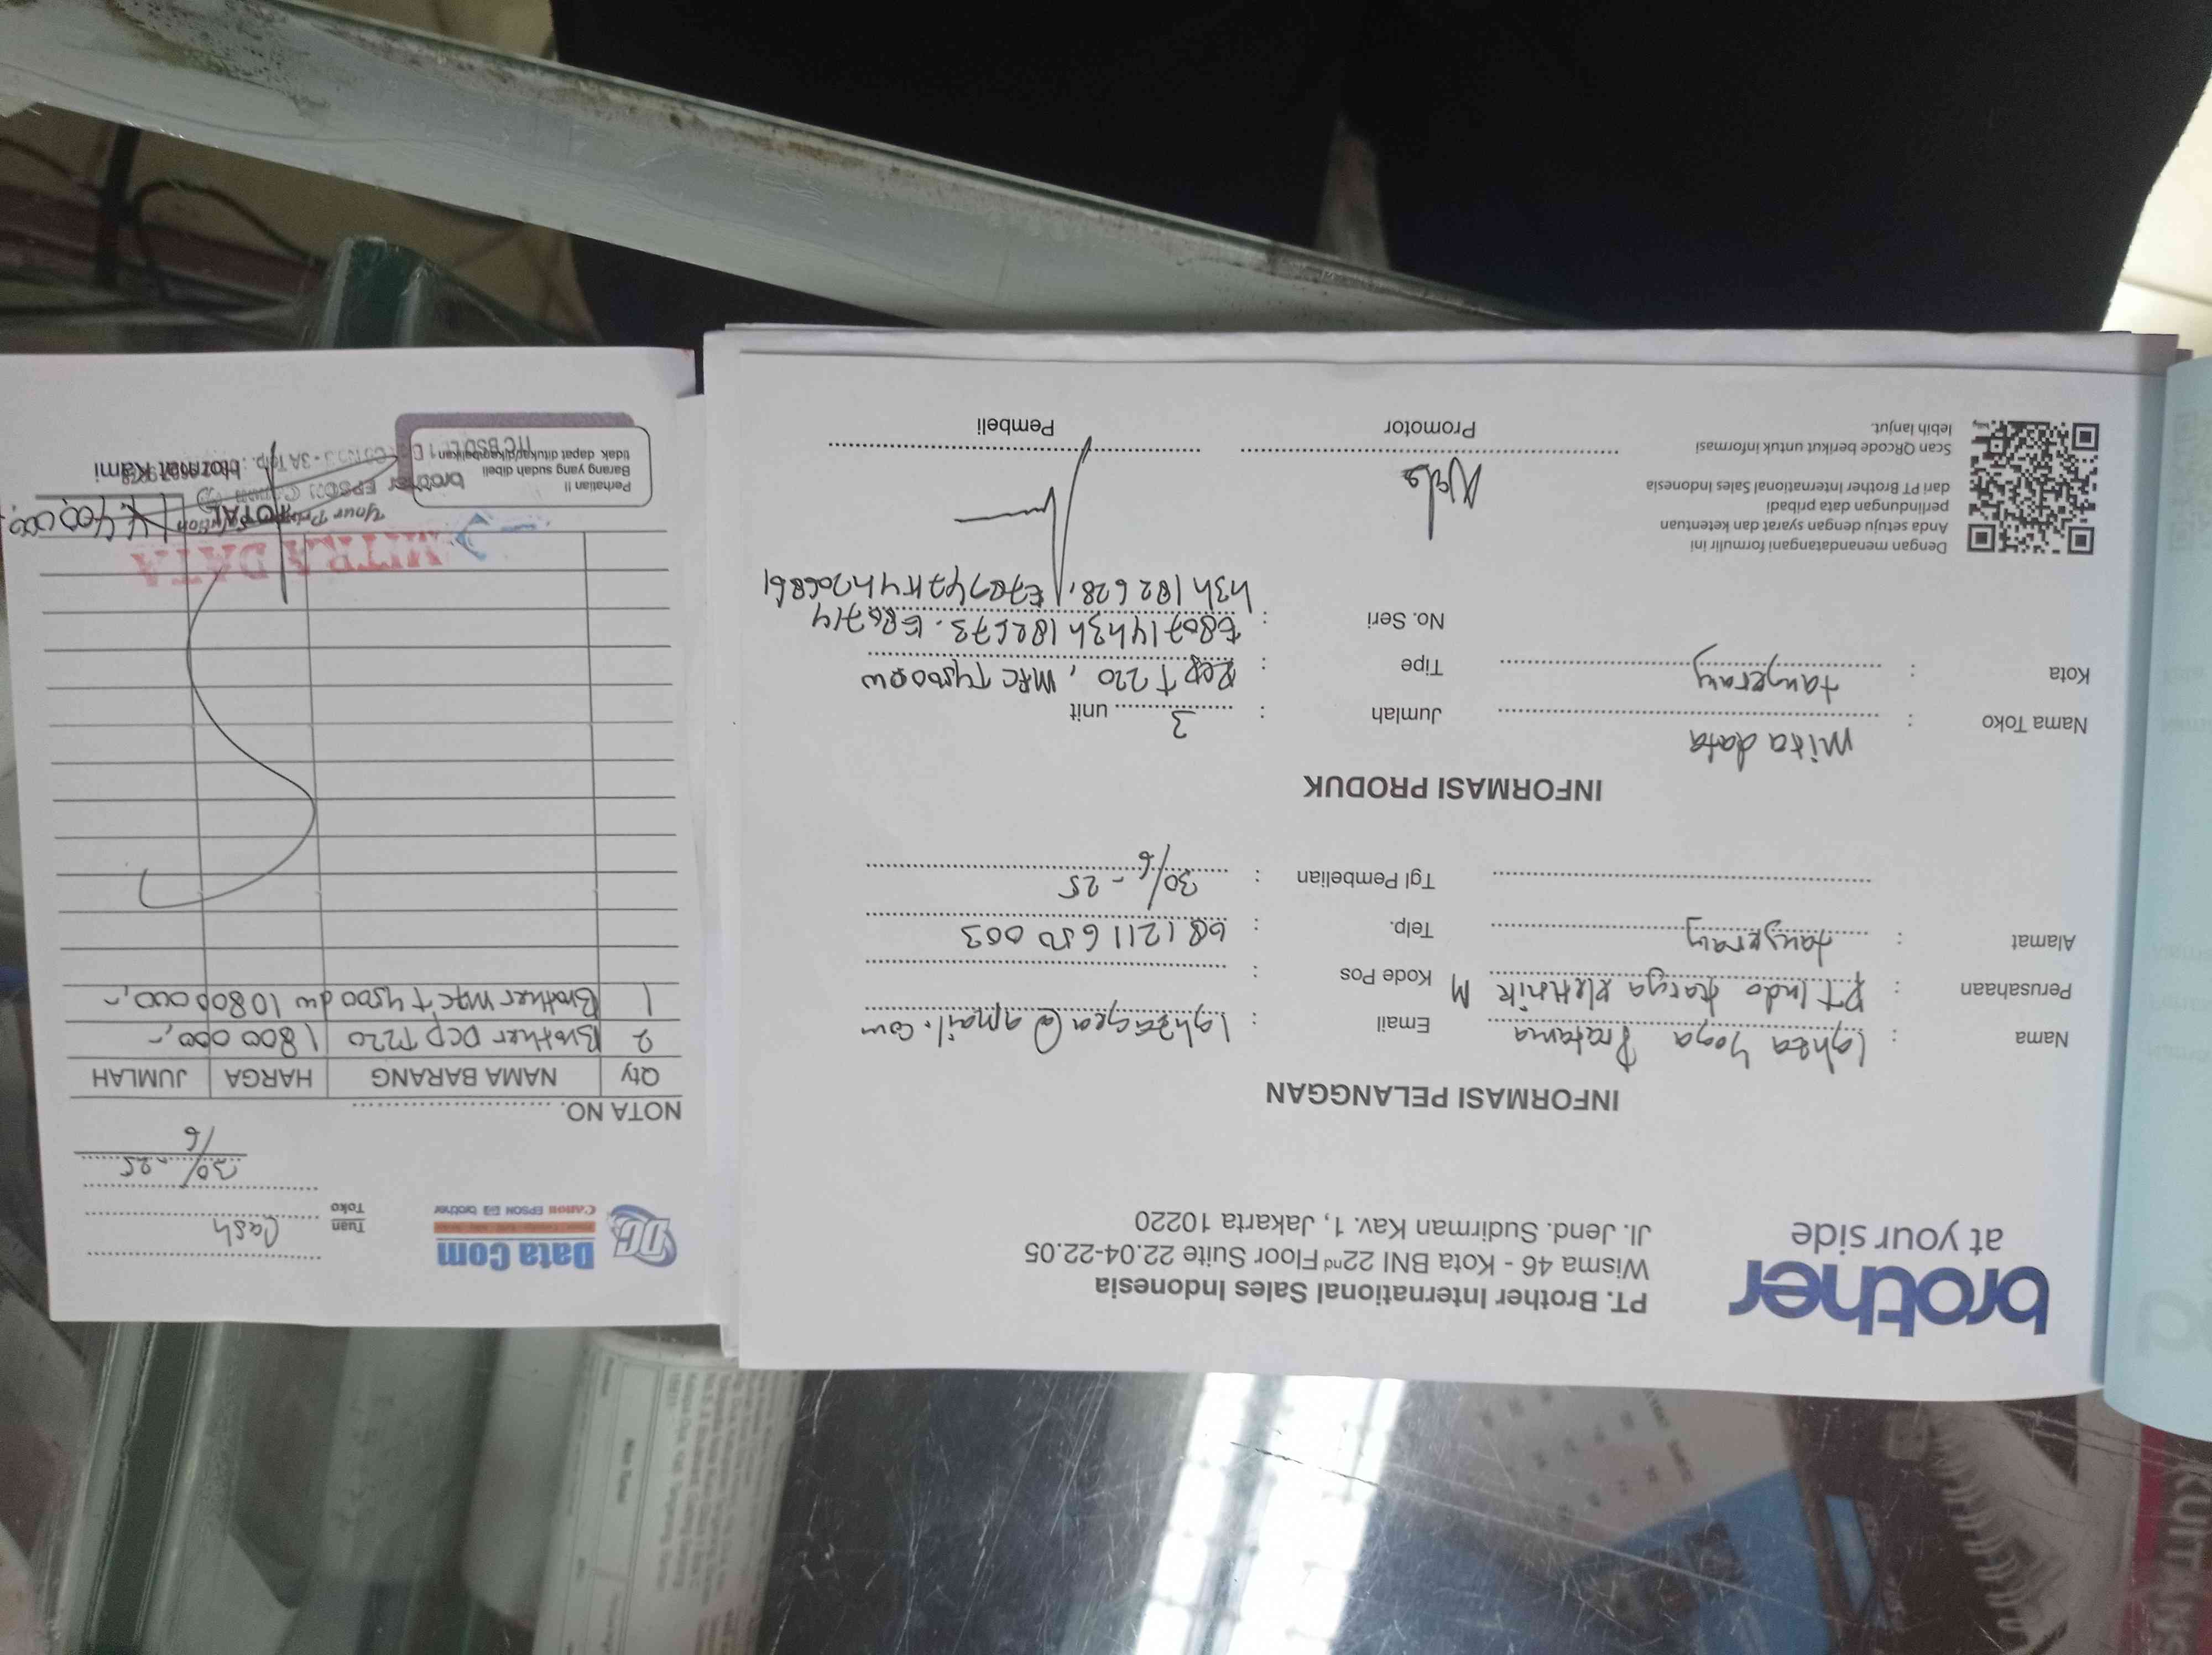 brother
at your side
PT. Brother International Sales Indonesia
Wisma 46 - Kota BNI 22nd Floor Suite 22.04-22.05
Jl. Jend. Sudirman Kav. 1, Jakarta 10220
INFORMASI PELANGGAN
Nama : Ighza Yoga Pratama
Perusahaan : PT Indo Karya Elektrik M
Alamat : tangerang
Email : @gmail.com
Kode Pos :
Telp. : 081211650003
Tgl Pembelian : 30/6-25
INFORMASI PRODUK
Nama Toko : mitra data
Kota : tangerang
Jumlah : 3 unit
Tipe : Dcp T220, MFC T4500DW
No. Seri :
h3h182628,
Dengan menandatangani formulir ini
Anda setuju dengan syarat dan ketentuan
perlindungan data pribadi
dari PT Brother International Sales Indonesia
Scan QRcode berikut untuk informasi
lebih lanjut.
Promotor
Pembeli
DC
Data Com
CANON EPSON brother
Tuan
Toko
Cash
30/6-25
NOTA NO.
Qty NAMA BARANG HARGA JUMLAH
2 Brother DCP T220 1800 000,-
1 Brother MFC T4500 dw 10800 000,-
MITRA DATA
TOTAL 14.400.000,
Perhatian !!
Barang yang sudah dibeli
tidak dapat ditukar/dikembalikan
brother EPSON
ITC BSD
Hormat Kami
KUITANSI